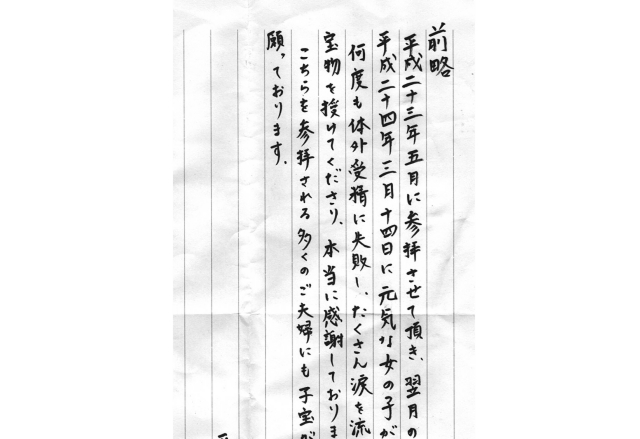 前略
平成二十三年五月に参拝させて頂き、翌月の
平成二十四年三月十四日に元気な女の子が
何度も体外受精に失敗し、たくさん涙を流
宝物を授けてくださり、本当に感謝しておりま
こちらを参拝される多くのご夫婦にも子宝が
願っております。